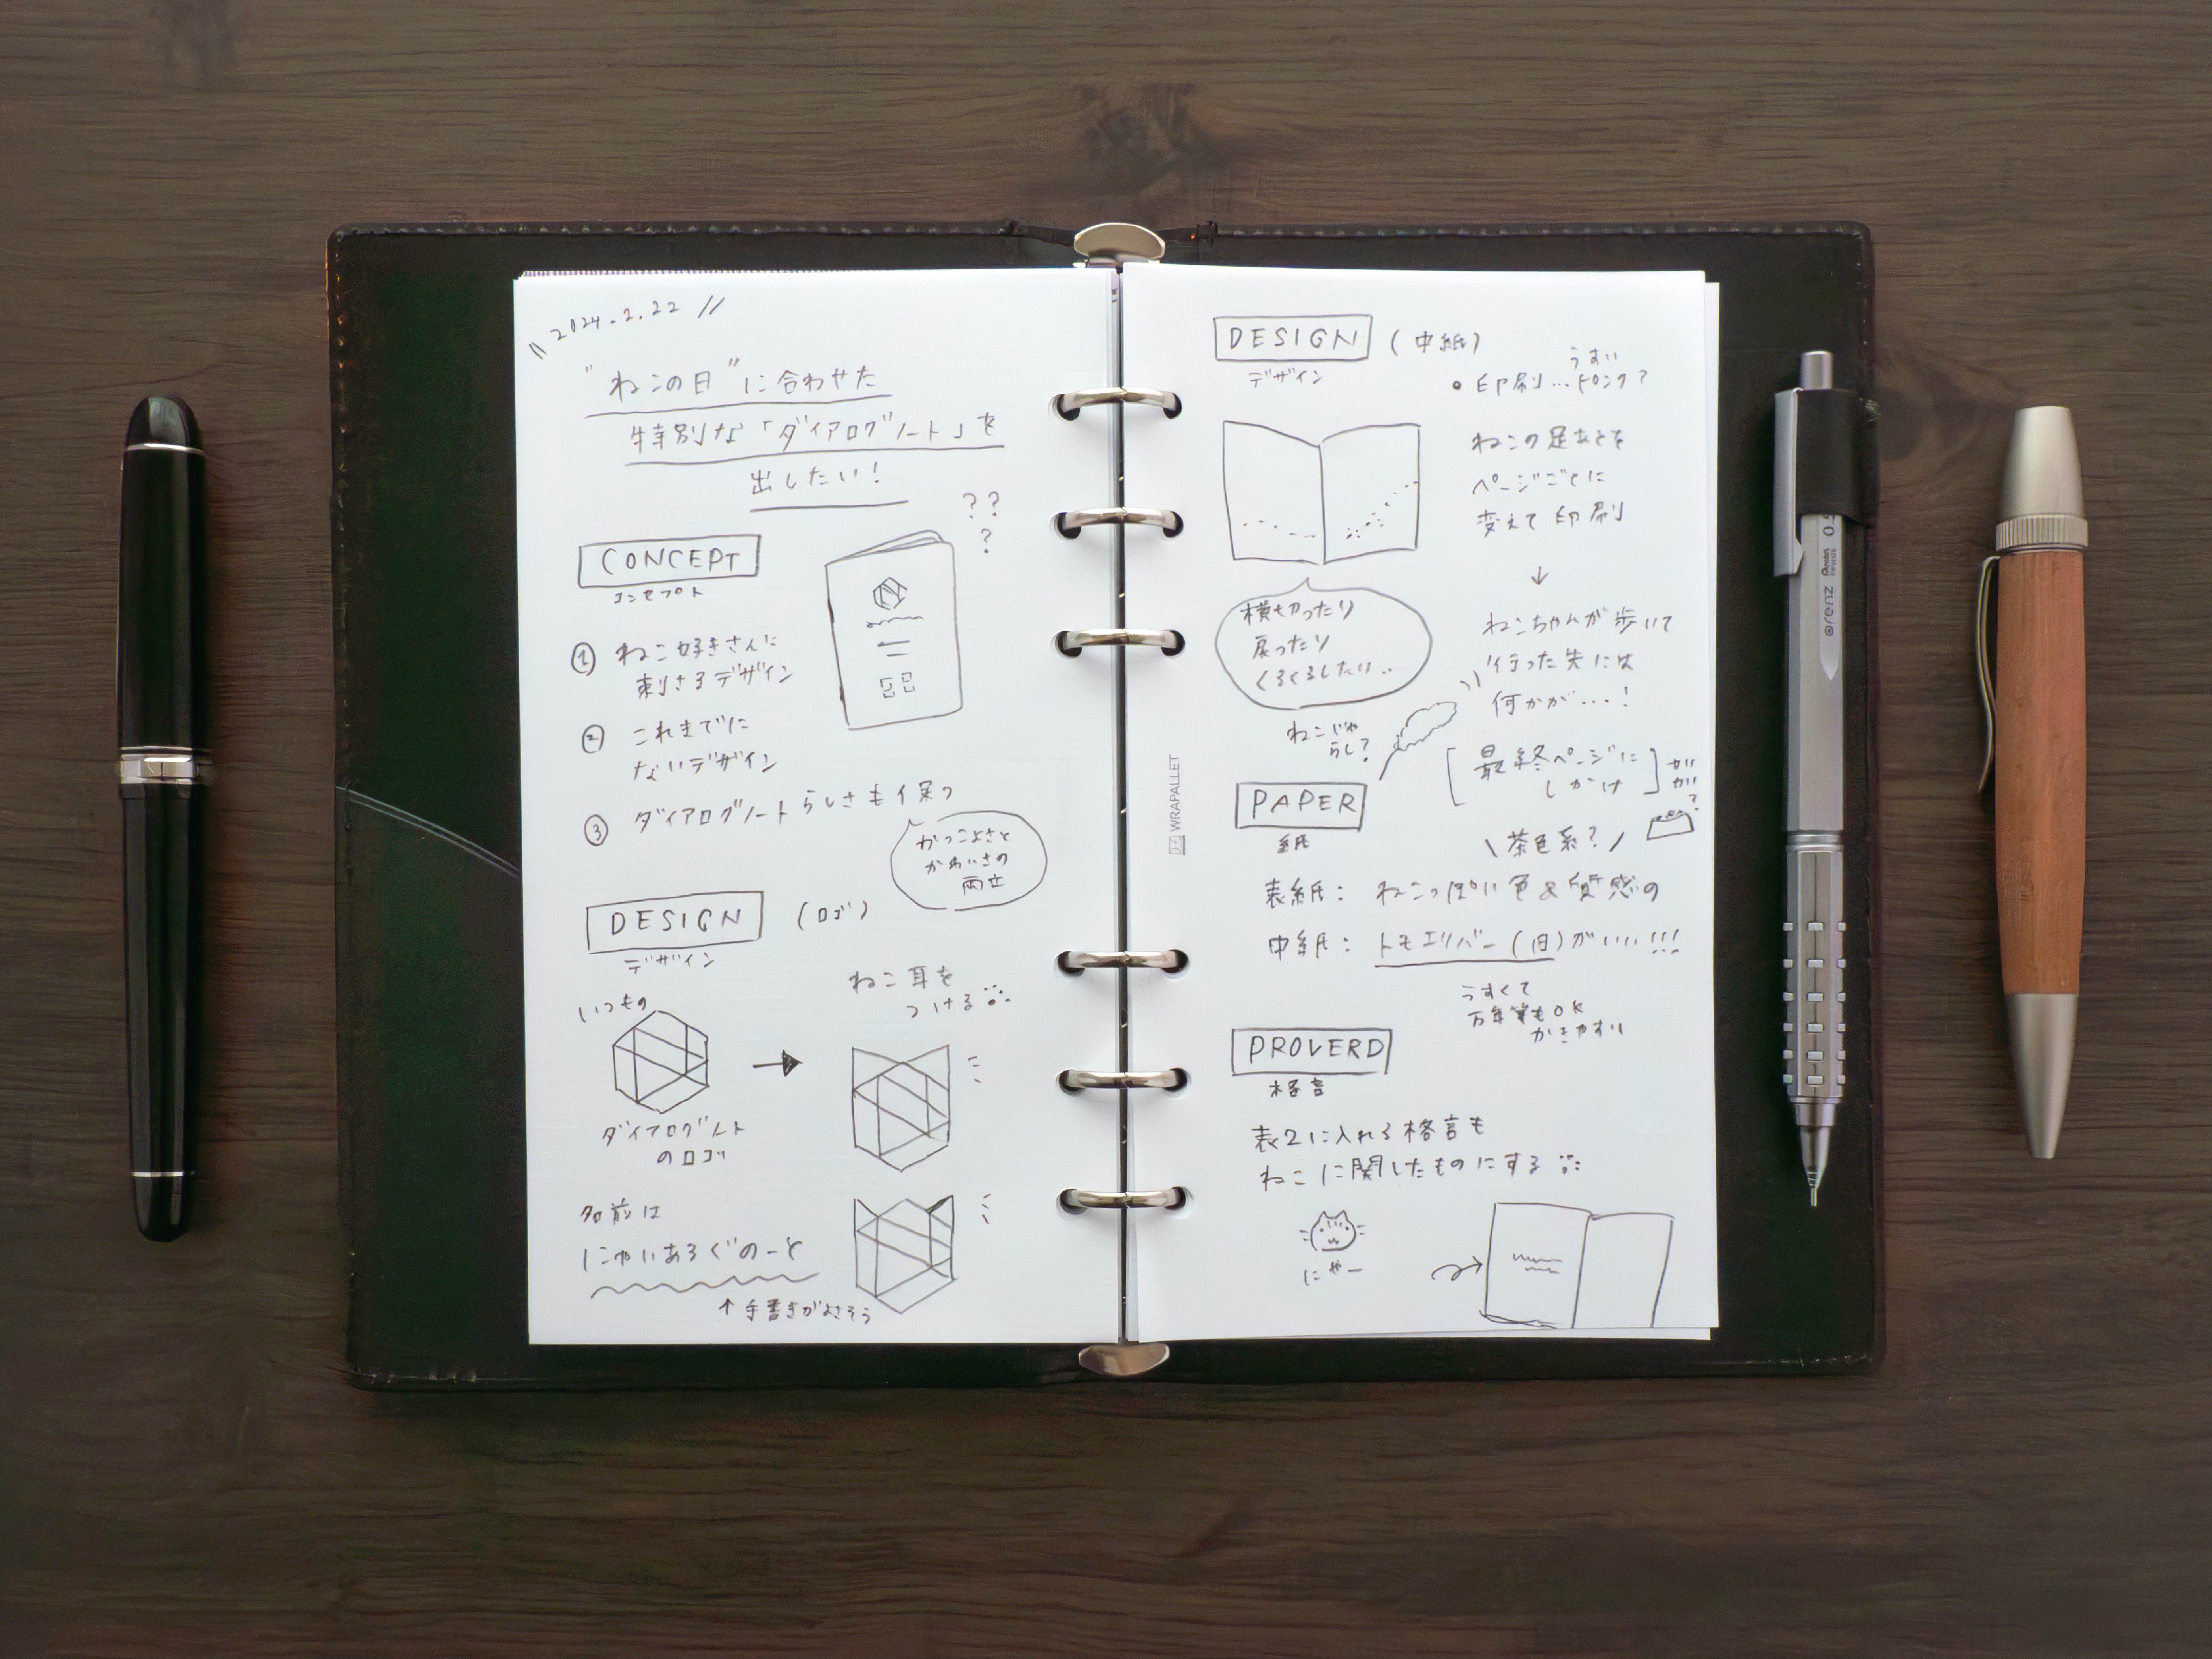 2024.2.22
"ねこの日"に合わせた
特別な「ダイアログノート」を
出したい!
???
CONCEPT
コンセプト
① ねこ好きさんに
刺さるデザイン
② これまでに
ないデザイン
③ ダイアログノートらしさも保つ
かっこよさと
かわいさの
両立
DESIGN (ロゴ)
デザイン
いつもの
ねこ耳を
つける
ダイアログノート
のロゴ
名前は
にゃいあろぐのーと
↑ 手書きがよさそう
DESIGN (中紙)
デザイン
うすい
• 印刷…ピンク?
ねこの足あとを
ページごとに
変えて印刷
↓
横切ったり
戻ったり
くるくるしたり..
ねこちゃんが歩いて
行った先には
何かが…!
ねこじゃ
らし?
[最終ページに
しかけ]
WRAPALLET
PAPER
紙
\ 茶色系? /
表紙: ねこっぽい色&質感の
中紙: トモエリバー(旧)がいい!!!
うすくて
万年筆もOK
かきやすい
PROVERD
格言
表2に入れる格言も
ねこに関したものにする
にゃー
0.5
Pentel
orenz